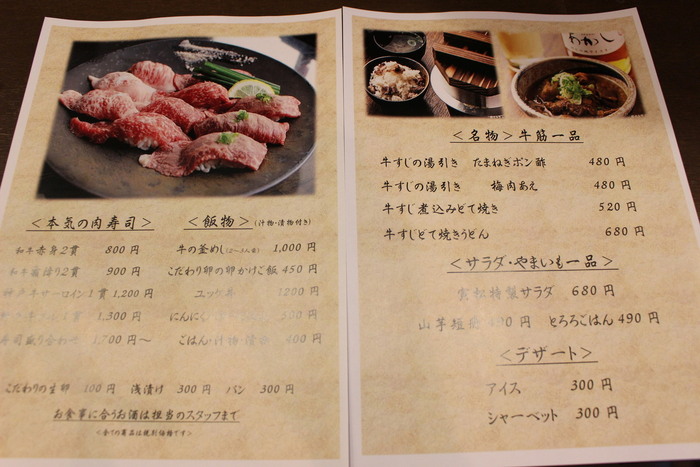 <本気の肉寿司>
和牛赤身2貫 800円
和牛霜降り2貫 900円
神戸牛サーロイン1貫 1,200円
1貫 1,300円
寿司盛り合わせ 1,700円~
<飯物>(汁物・漬物付き)
牛の釜めし 1,000円
こだわり卵の卵かけご飯 450円
ユッケ丼 1200円
にんにく
ごはん・汁物・漬物 400円
こだわりの生卵 100円 浅漬け 300円 パン 300円
お食事に合うお酒は担当のスタッフまで
<全ての商品は税別価格です>
あかし
<名物>牛筋一品
牛すじの湯引き たまねぎポン酢 480円
牛すじの湯引き 梅肉あえ 480円
牛すじ煮込みどて焼き 520円
牛すじどて焼きうどん 680円
<サラダ・やまいも一品>
特製サラダ 680円
山芋短冊 490円 とろろごはん 490円
<デザート>
アイス 300円
シャーベット 300円